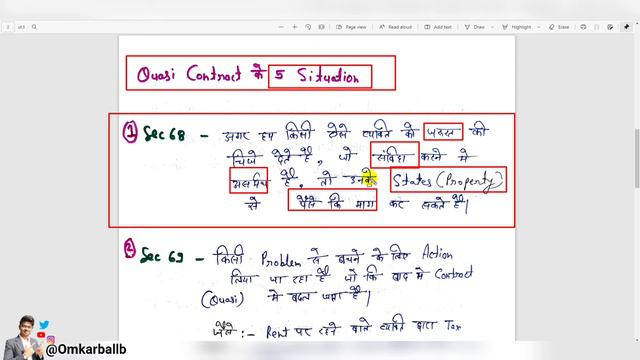 2 of 3
Draw
Read aloud
Add text
Quasi Contract के 5 Situation
① Sec 68 - अगर हम किसी ऐसे व्यक्ति को जरूरत की
चिजे देते है, जो संविदा करने मे
असमर्थ है, तो उनके States (Property)
से पैसे कि मांग कर सकते है।
② Sec 69 - किसी Problem से बचने के लिए Action
लिया जा रहा है जो कि बाद मे Contract
(Quasi) मे बदल जाता है।
जैसे :- Rent पर रहने वाले व्यक्ति द्वारा Tax
@Omkarballb